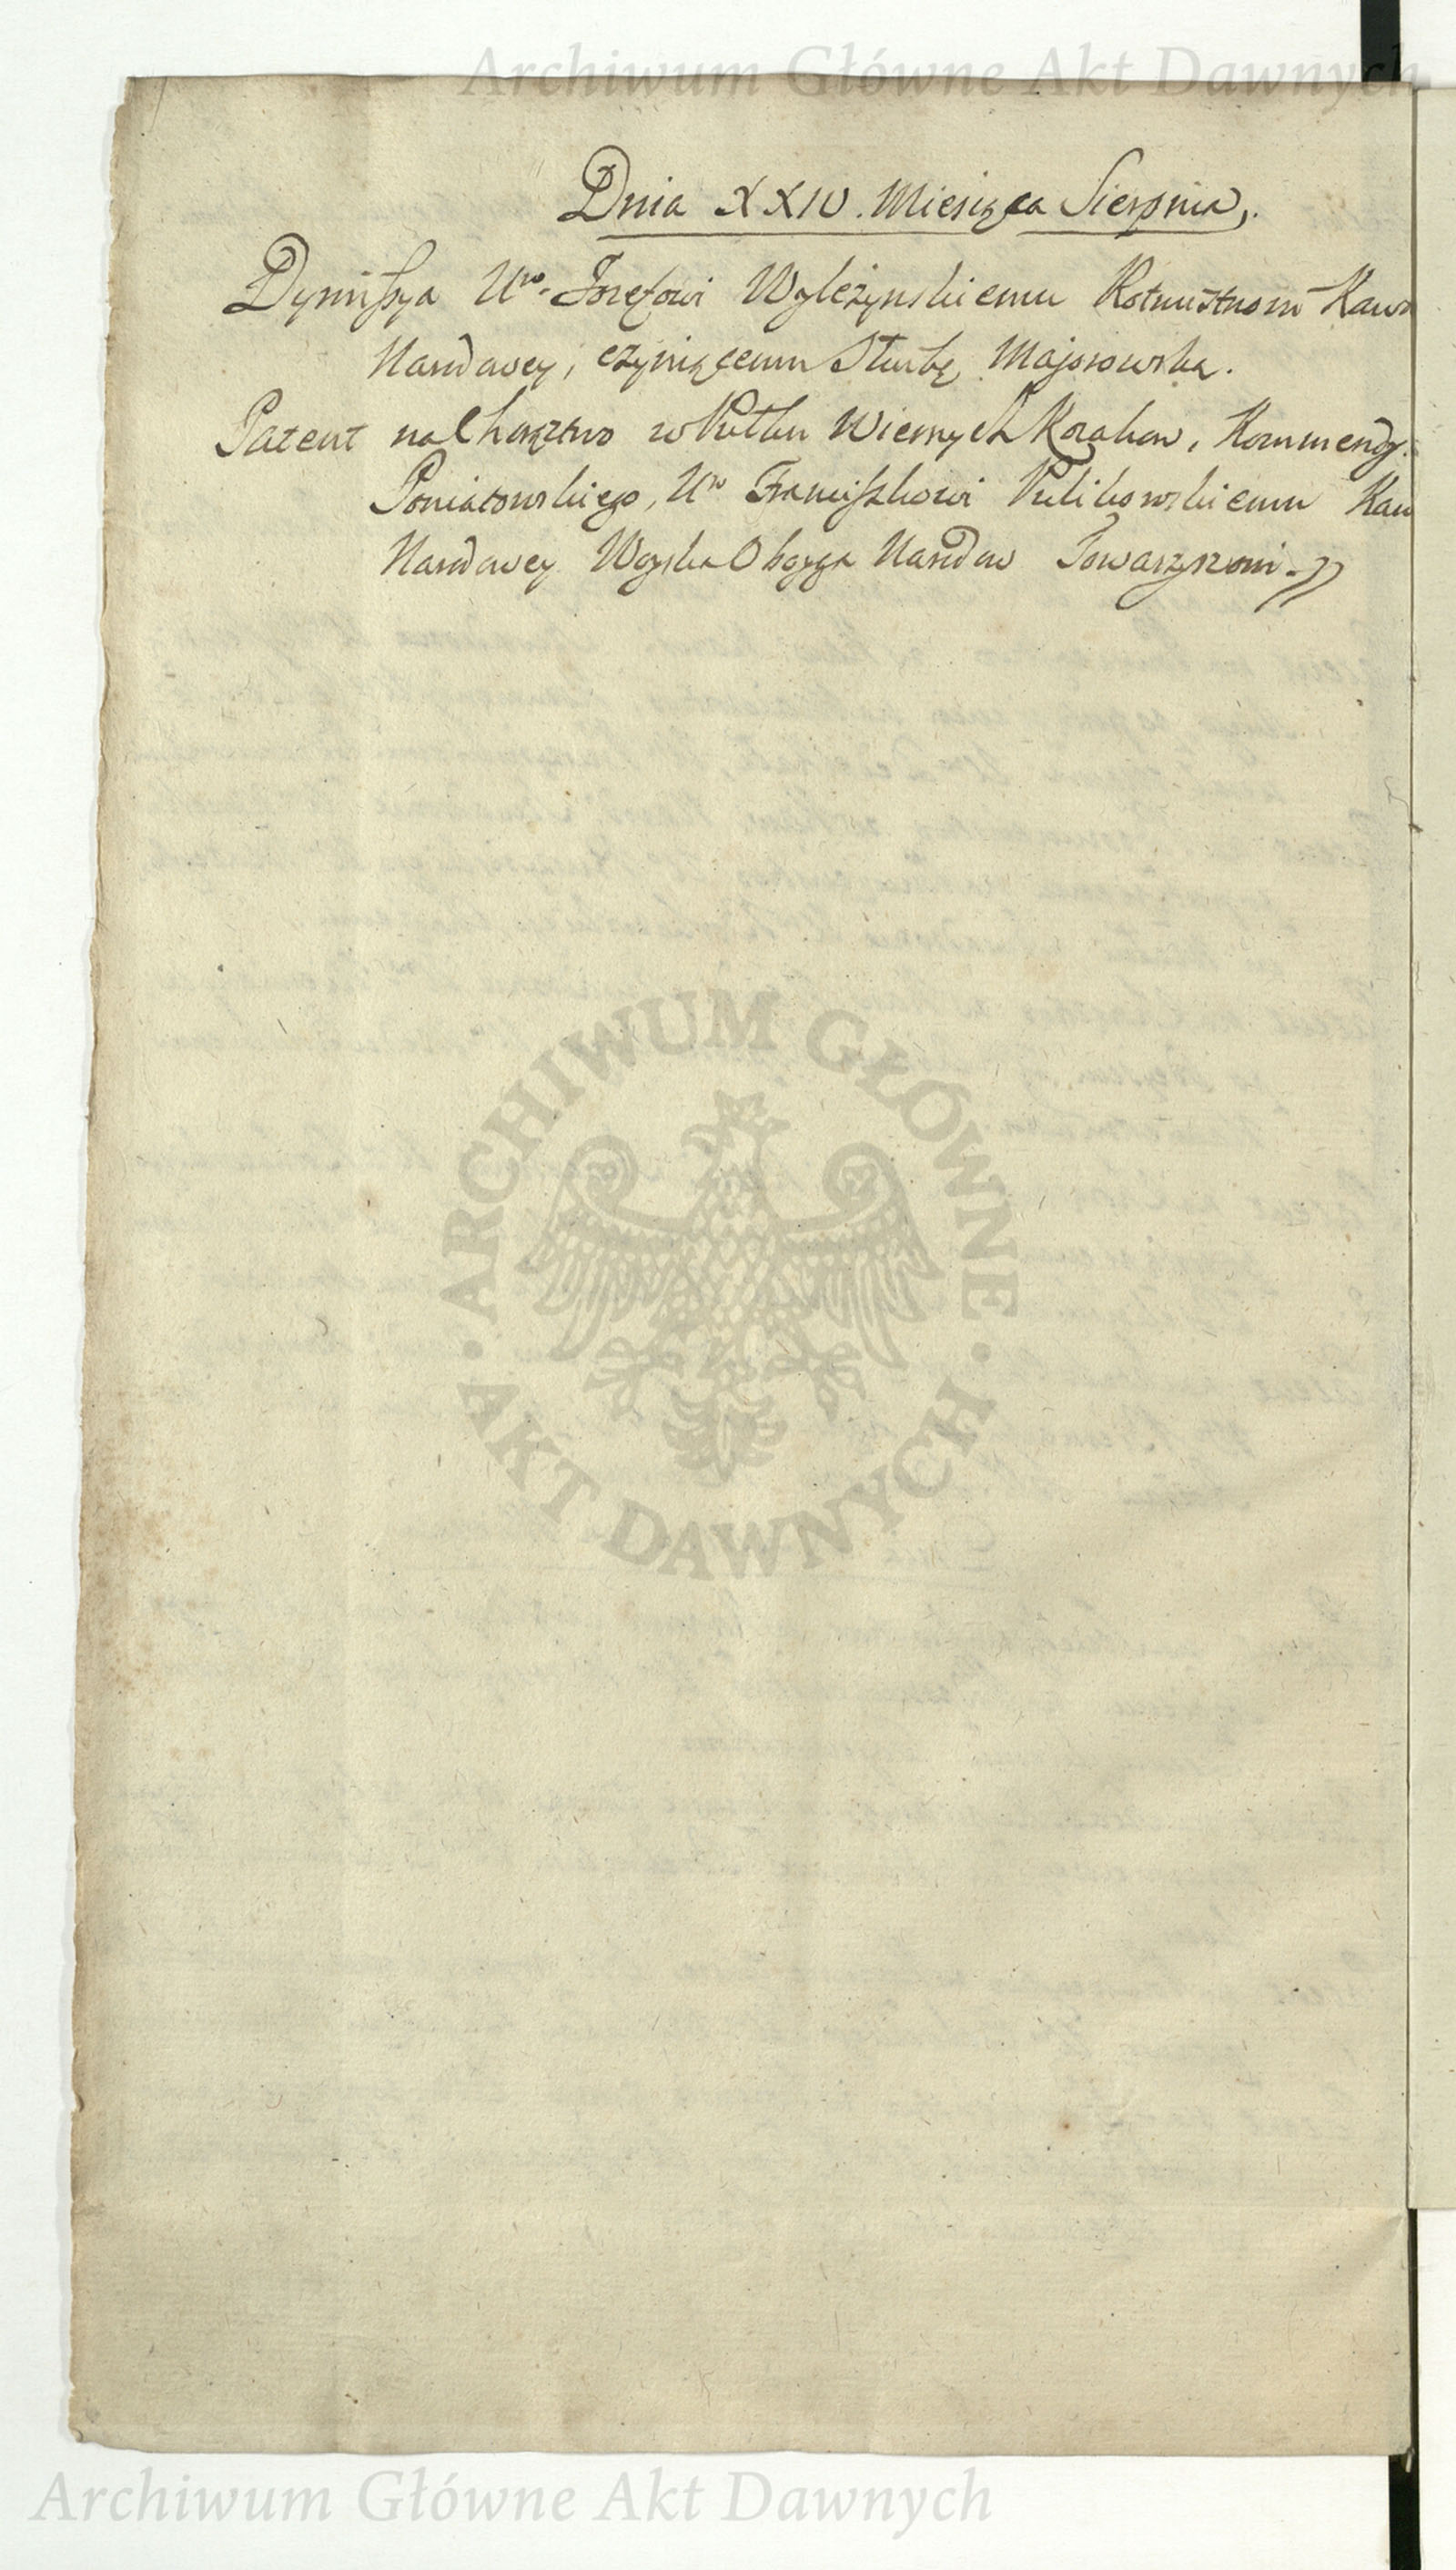 Archiwum Główne Akt Dawnych
Dnia XXIV. Miesiąca Sierpnia,.
Dymissya Uro. Jozefowi Wyleżynskiemu Rotmistrzowi Kaw
Narodowey, czyniącemu Służbę Majorowska.
Patent na Chorąztwo w Pułku Wiernych Kozakow, Kommendy.
Poniatowskiego, Uro Franciszkowi Kaw
Narodowey Woyska Oboyga Narodow Towarzyszowi.
ARCHIWUM GŁÓWNE
· AKT DAWNYCH ·
Archiwum Główne Akt Dawnych